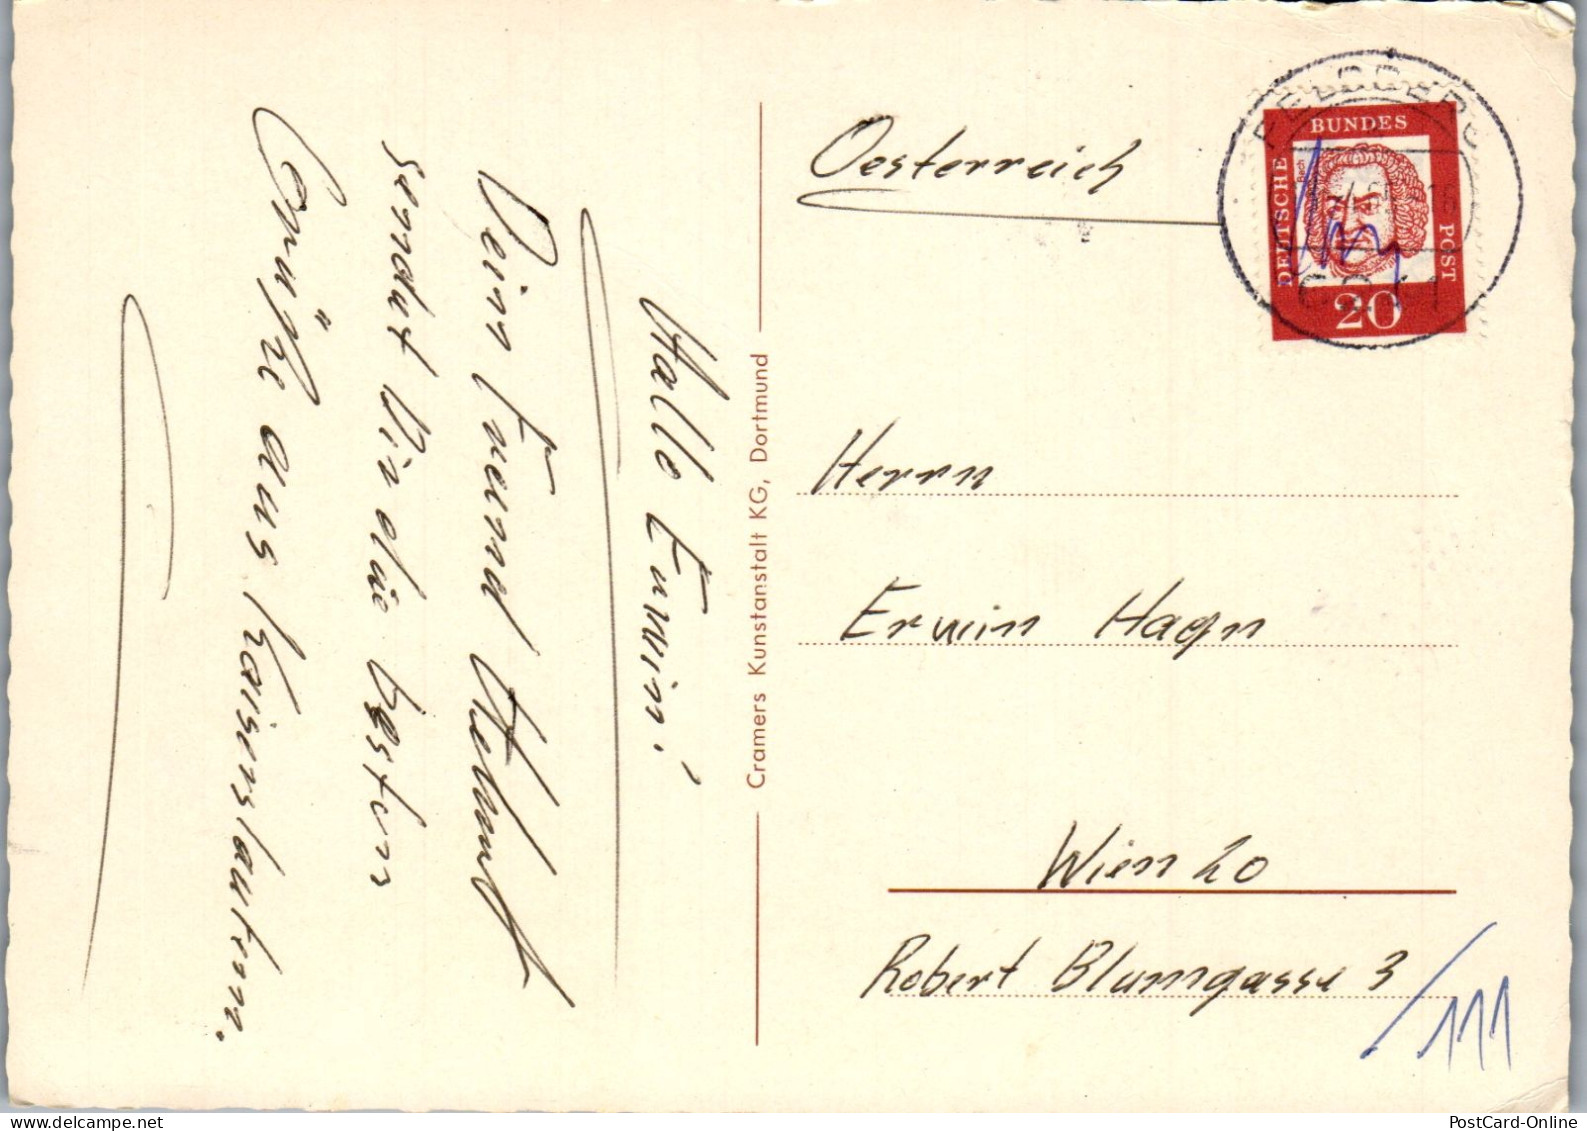 Hallo Erwin!
Dein Freund Helmut
sendet Dir die besten
Grüße aus Kaiserslautern.
Cramers Kunstanstalt KG, Dortmund
Oesterreich
DEUTSCHE
BUNDES
POST
20
Herrn
Erwin Hagn
Wien 20
Robert Blumgasse 3
/111
PostCard-Online